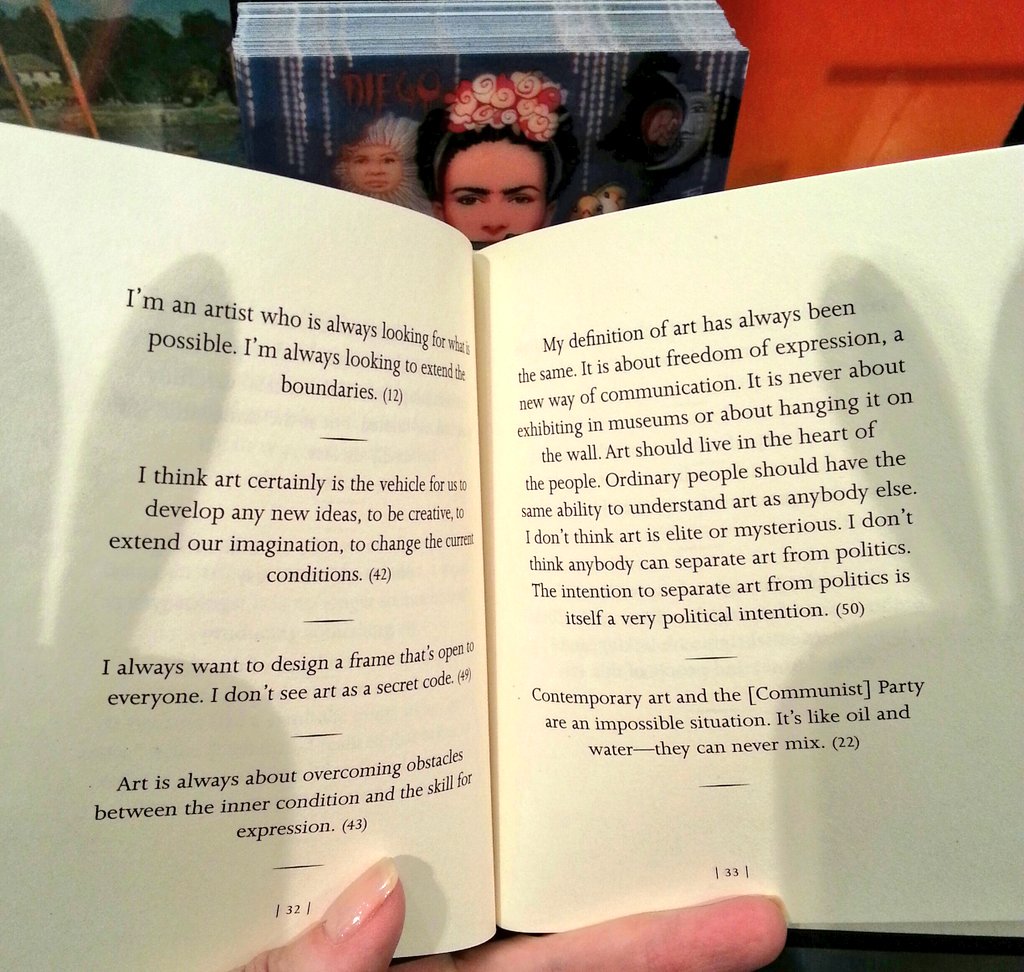 DIEGO
I'm an artist who is always looking for what is
possible. I'm always looking to extend the
boundaries. (12)
I think art certainly is the vehicle for us to
develop any new ideas, to be creative, to
extend our imagination, to change the current
conditions. (42)
I always want to design a frame that's open to
everyone. I don't see art as a secret code. (49)
Art is always about overcoming obstacles
between the inner condition and the skill for
expression. (43)
| 32 |
My definition of art has always been
the same. It is about freedom of expression, a
new way of communication. It is never about
exhibiting in museums or about hanging it on
the wall. Art should live in the heart of
the people. Ordinary people should have the
same ability to understand art as anybody else.
I don't think art is elite or mysterious. I don't
think anybody can separate art from politics.
The intention to separate art from politics is
itself a very political intention. (50)
Contemporary art and the [Communist] Party
are an impossible situation. It's like oil and
water—they can never mix. (22)
| 33 |